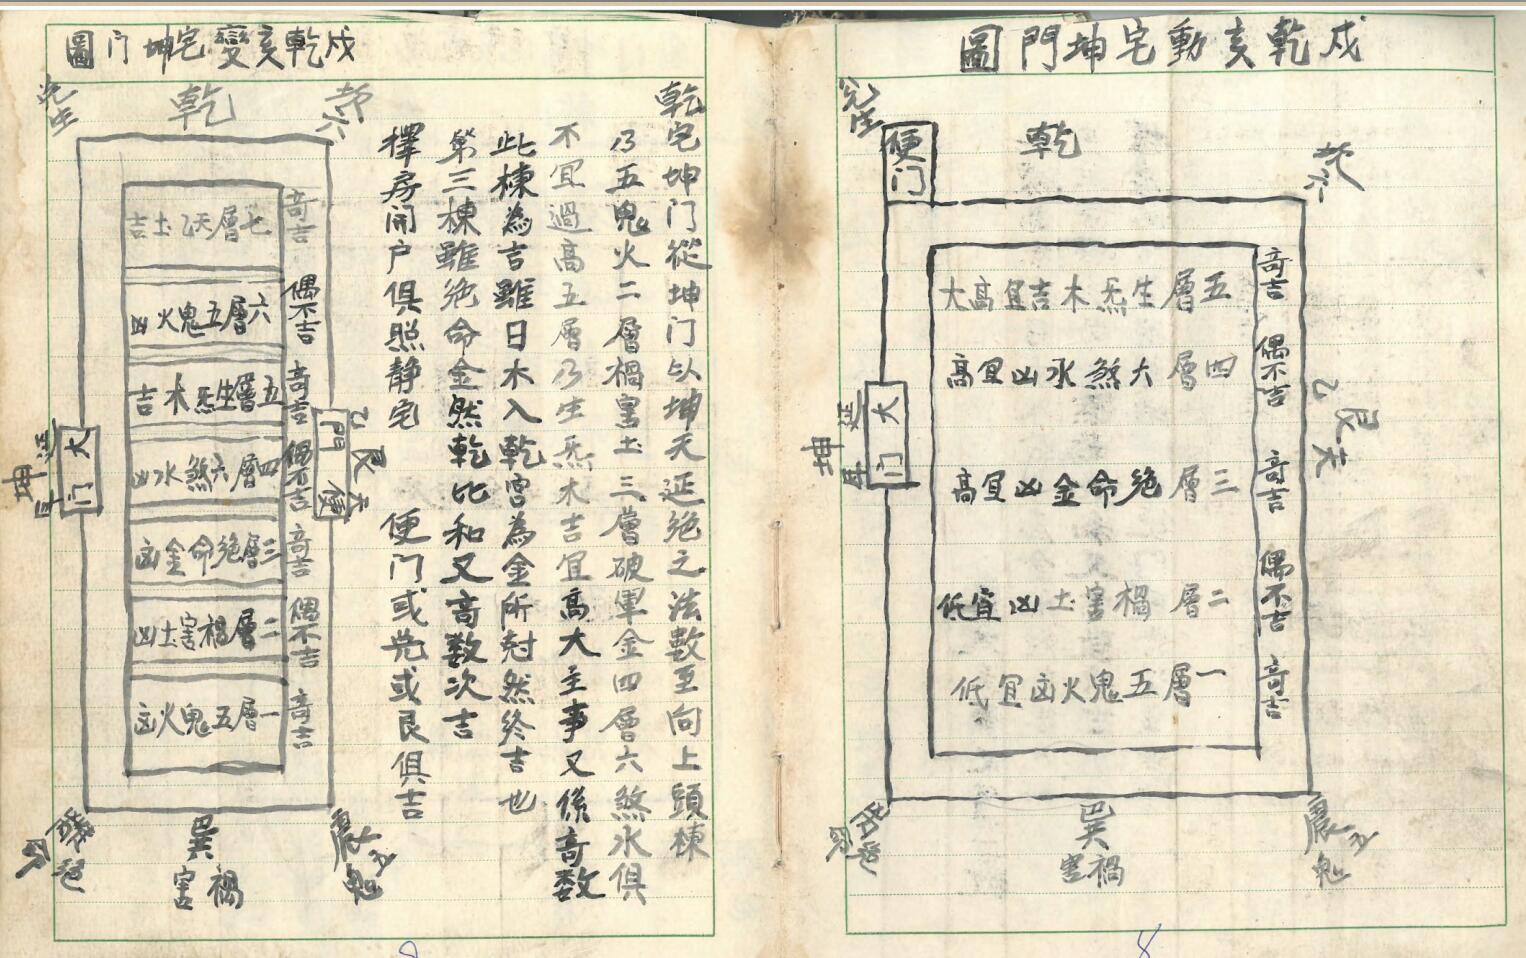 戍乾亥動宅坤門圖
乾
便门
大门
坤
五層生炁木吉宜高大
四層六煞水凶宜高
三層絶命金凶宜高
二層禍害土凶宜低
一層五鬼火凶宜低
奇吉
偶不吉
奇吉
偶不吉
奇吉
艮天乙
巽
禍害
震五鬼
8
戍乾亥變宅坤门圖
乾宅坤门從坤门以坤天延絶之法數至向上頭棟
乃五鬼火二層禍害土三層破軍金四層六煞水俱
不宜過高五層乃生炁木吉宜高大主事又係奇数
此棟為吉雖日木入乾宫為金所尅然終吉也
第三棟雖絶命金然乾比和又奇数次吉
擇房開户俱照静宅 便门或兊或艮俱吉
乾
七層天乙土吉
六層五鬼火凶
五層生炁木吉
四層六煞水凶
三層絶命金凶
二層禍害土凶
一層五鬼火凶
奇吉
偶不吉
奇吉
偶不吉
奇吉
偶不吉
奇吉
大门
坤
便門
艮天乙
巽
禍害
震五鬼